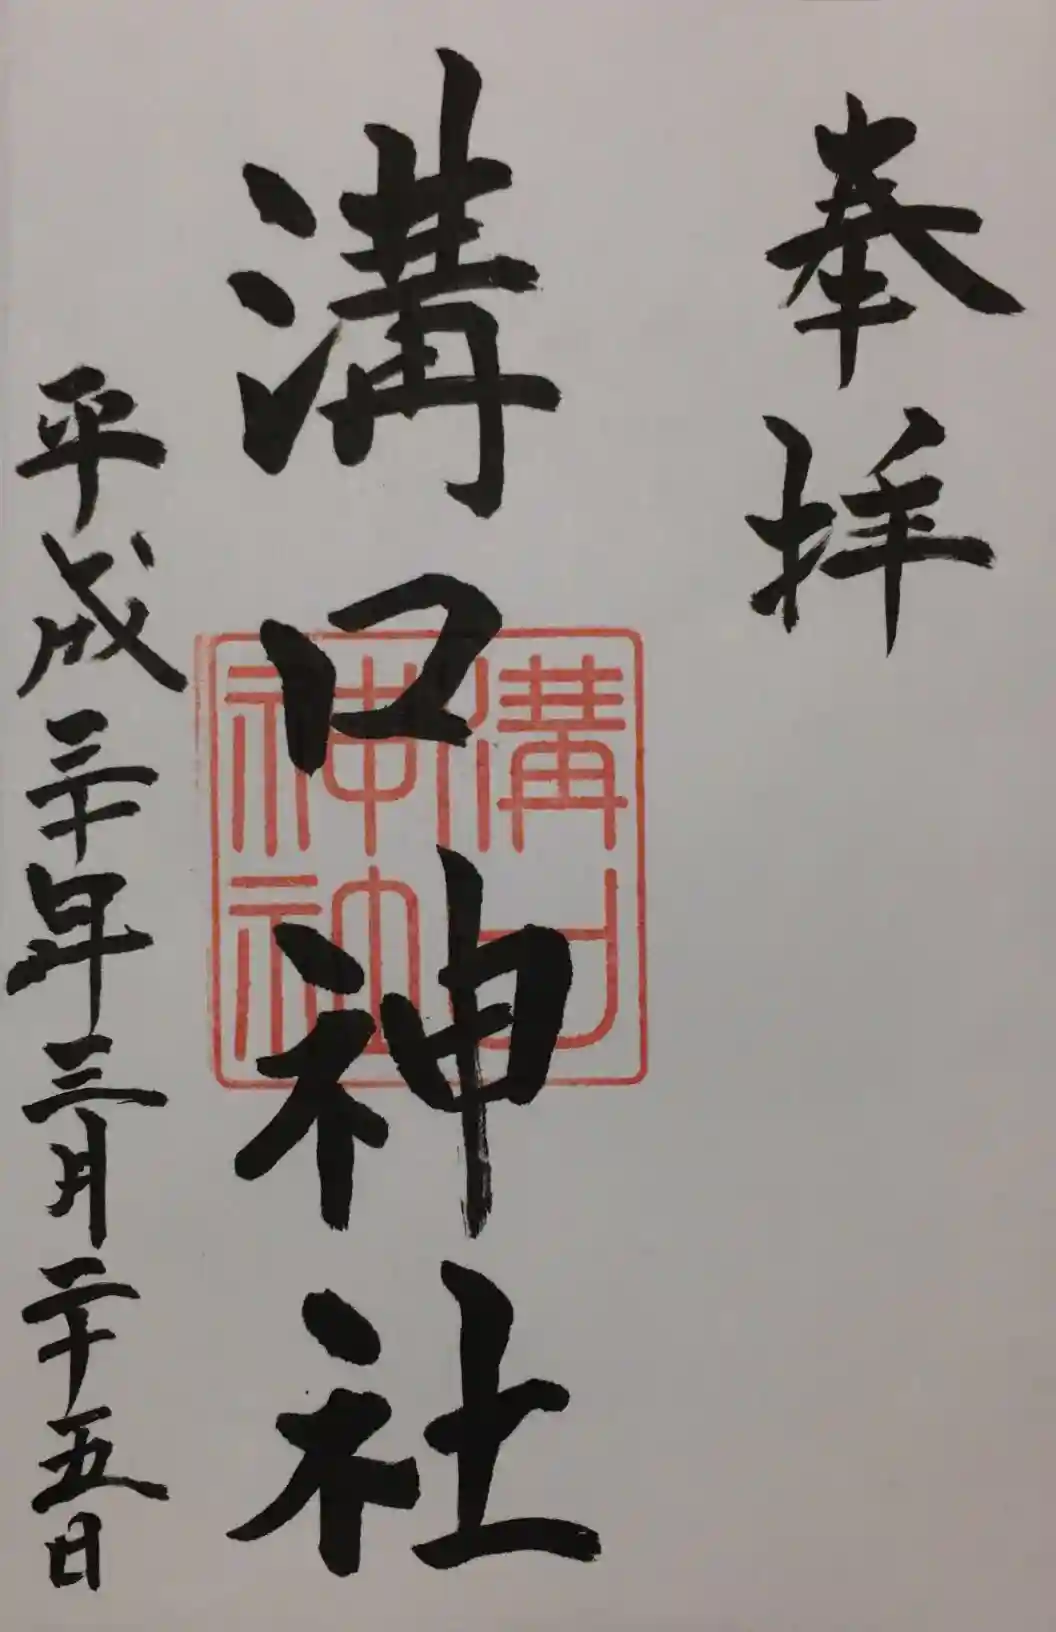 奉拝
溝口神社
溝口神社
平成三十年三月二十五日